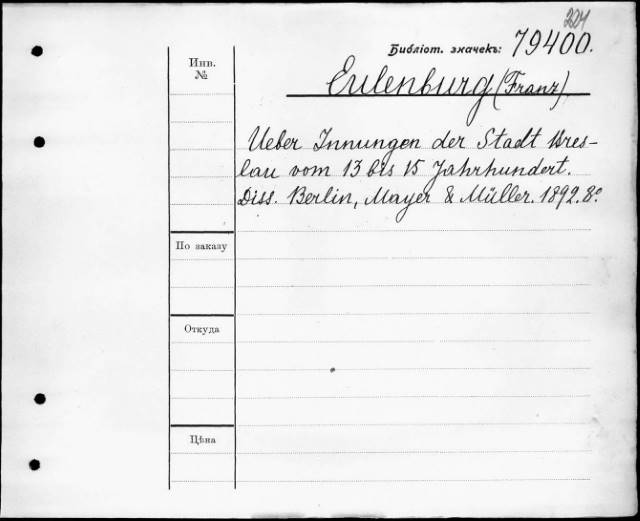 224
Библіот. значекъ: 79400.
Инв.
№
Eulenburg (Franz)
Ueber Innungen der Stadt Bres-
lau vom 13 bis 15 Jahrhundert.
Diss. Berlin, Mayer & Müller. 1892. 8º.
По заказу
Откуда
Цѣна